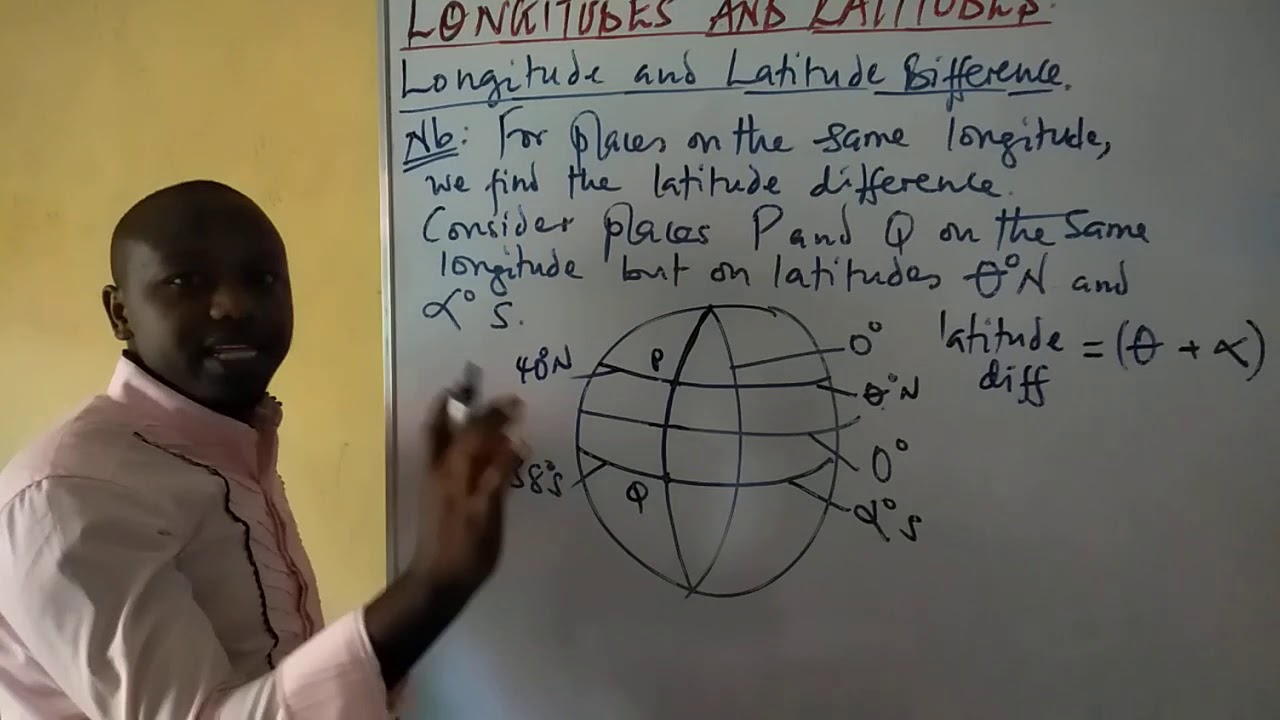 LONGITUDES AND LATITUDES.
Longitude and Latitude Difference.
Nb: For places on the same longitude,
we find the latitude difference.
Consider places P and Q on the same
longitude but on latitudes θ°N and
α° S.
latitude diff = (θ + α)
40°N
P
0°
θ°N
0°
38°S
Q
α°S